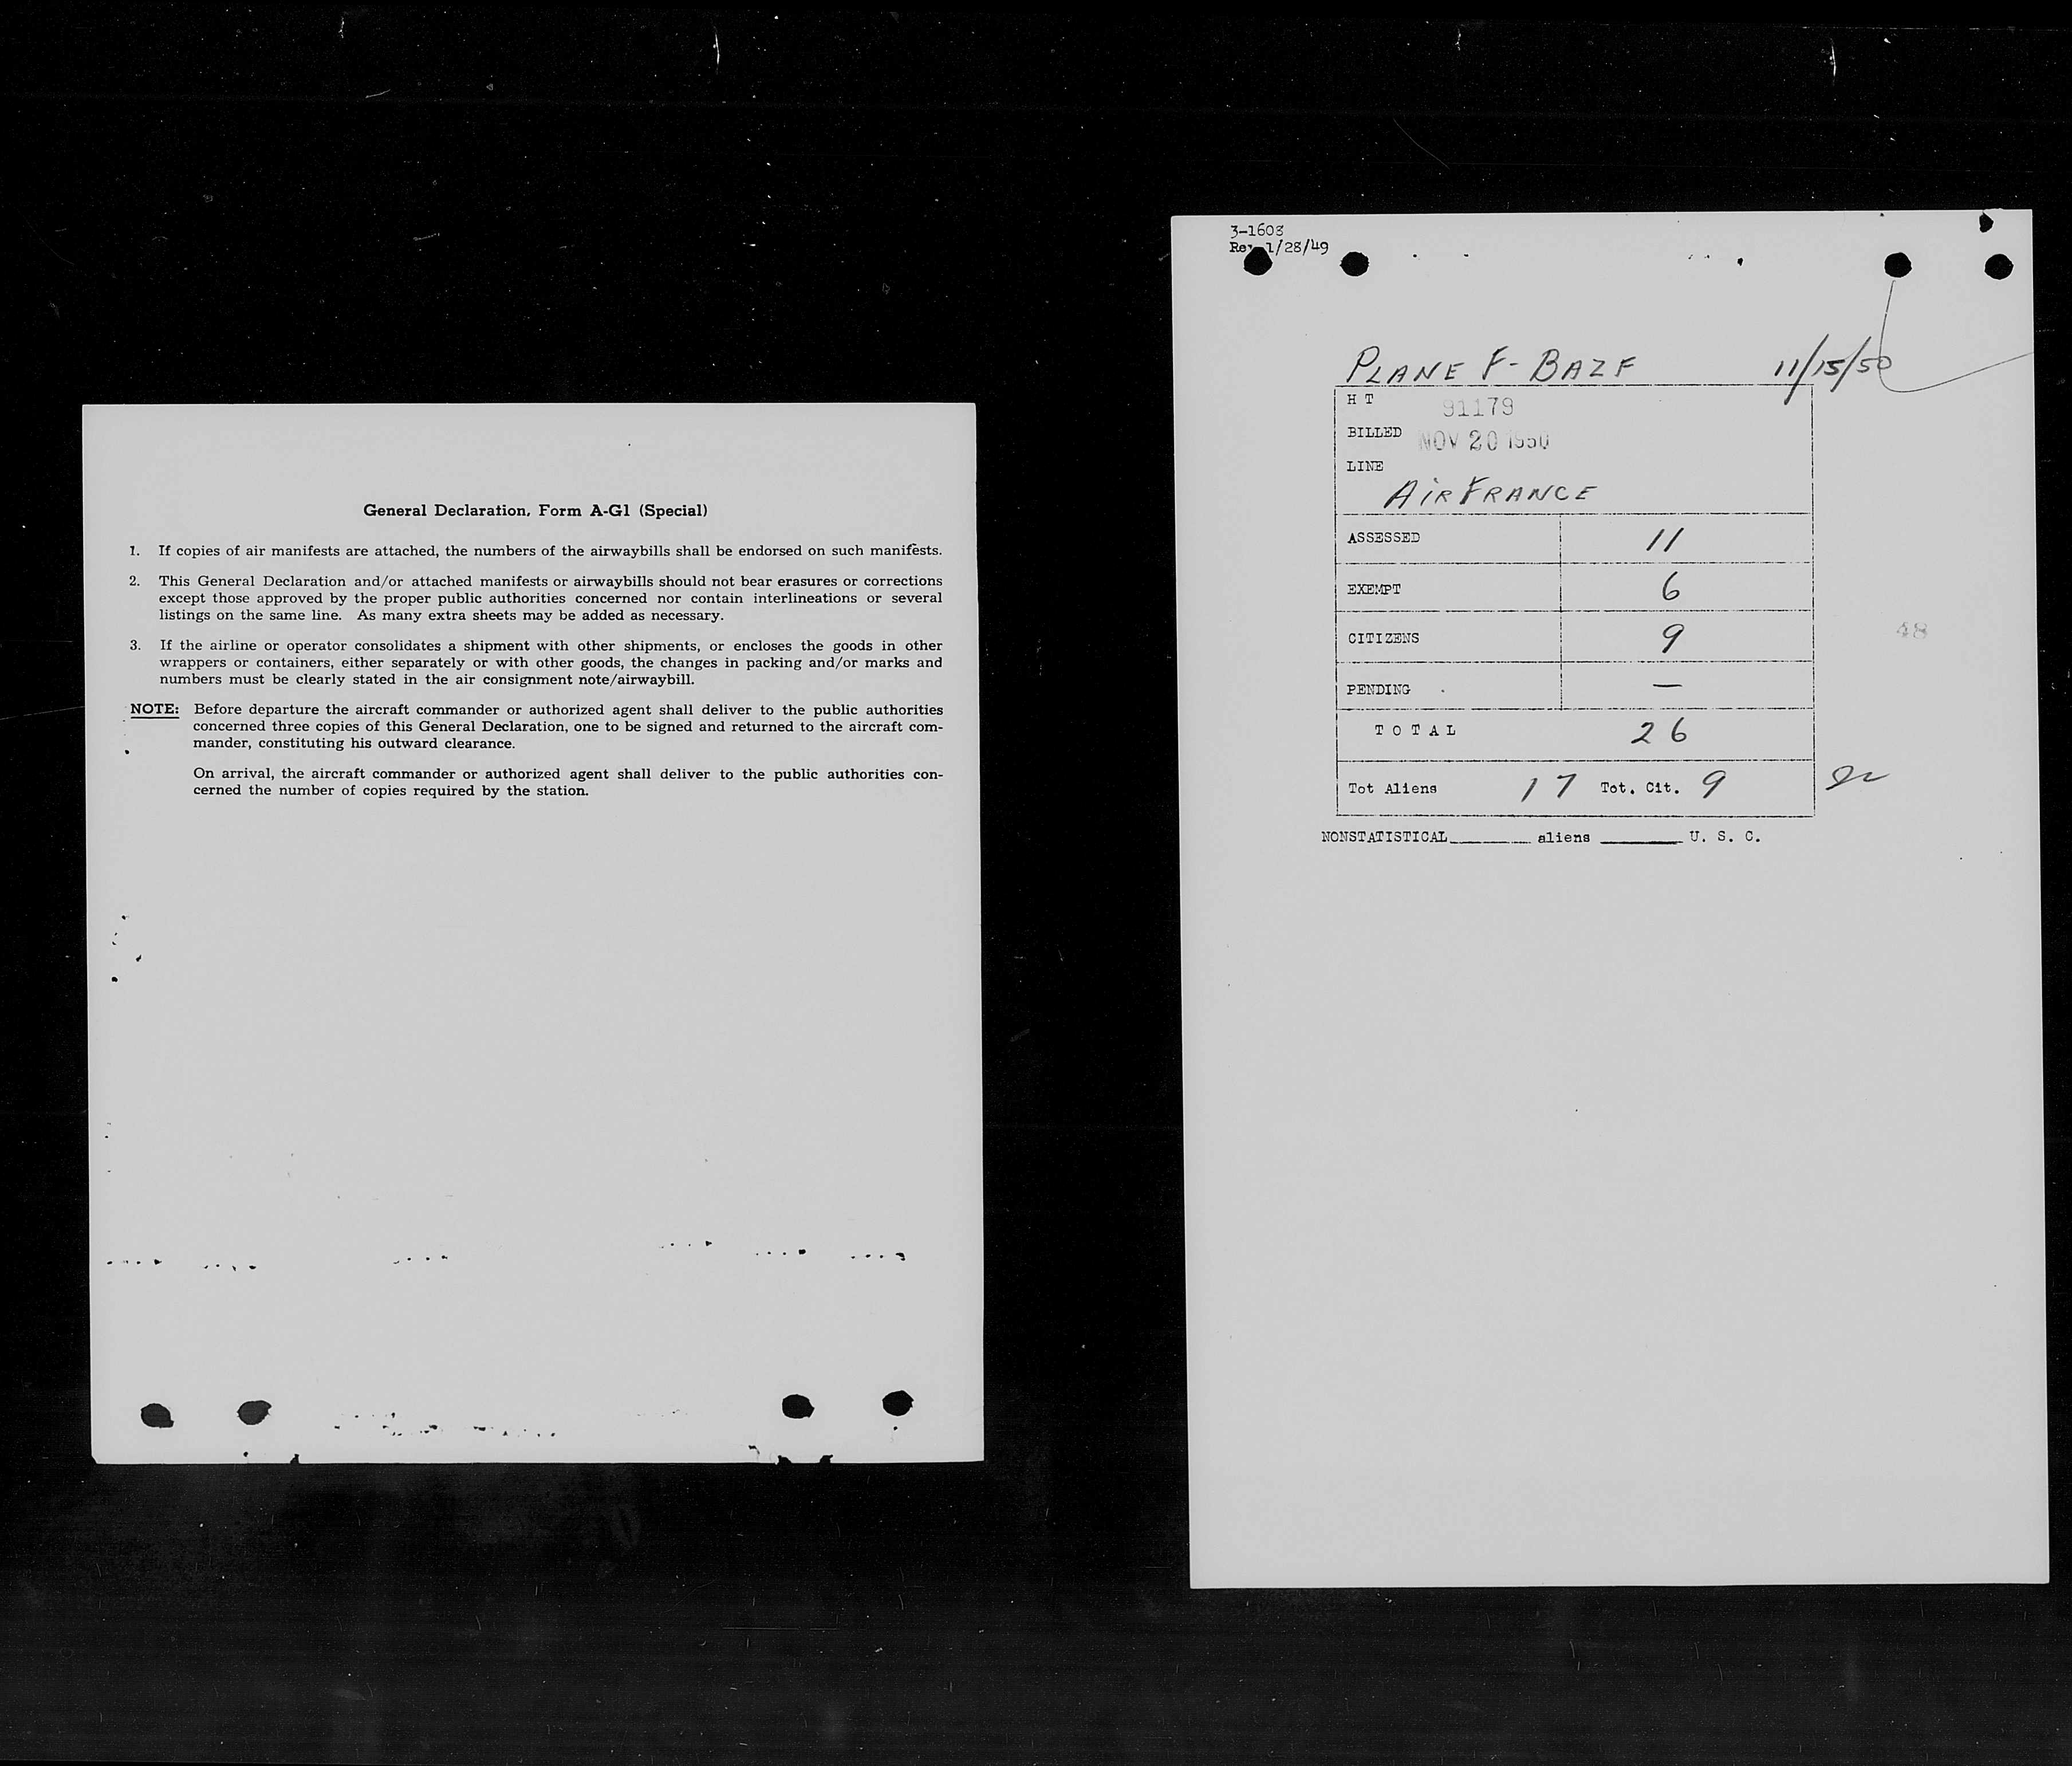 General Declaration, Form A-G1 (Special)
1. If copies of air manifests are attached, the numbers of the airwaybills shall be endorsed on such manifests.
2. This General Declaration and/or attached manifests or airwaybills should not bear erasures or corrections
except those approved by the proper public authorities concerned nor contain interlineations or several
listings on the same line. As many extra sheets may be added as necessary.
3. If the airline or operator consolidates a shipment with other shipments, or encloses the goods in other
wrappers or containers, either separately or with other goods, the changes in packing and/or marks and
numbers must be clearly stated in the air consignment note/airwaybill.
NOTE: Before departure the aircraft commander or authorized agent shall deliver to the public authorities
concerned three copies of this General Declaration, one to be signed and returned to the aircraft com-
mander, constituting his outward clearance.
On arrival, the aircraft commander or authorized agent shall deliver to the public authorities con-
cerned the number of copies required by the station.
3-1608
Rev 1/28/49
PLANE F-BAZF 11/15/50
H T 91179
BILLED NOV 20 1950
LINE
AIR FRANCE
ASSESSED 11
EXEMPT 6
CITIZENS 9
48
PENDING —
T O T A L 26
Tot Aliens 17 Tot. Cit. 9
NONSTATISTICAL______ aliens ______ U. S. C.